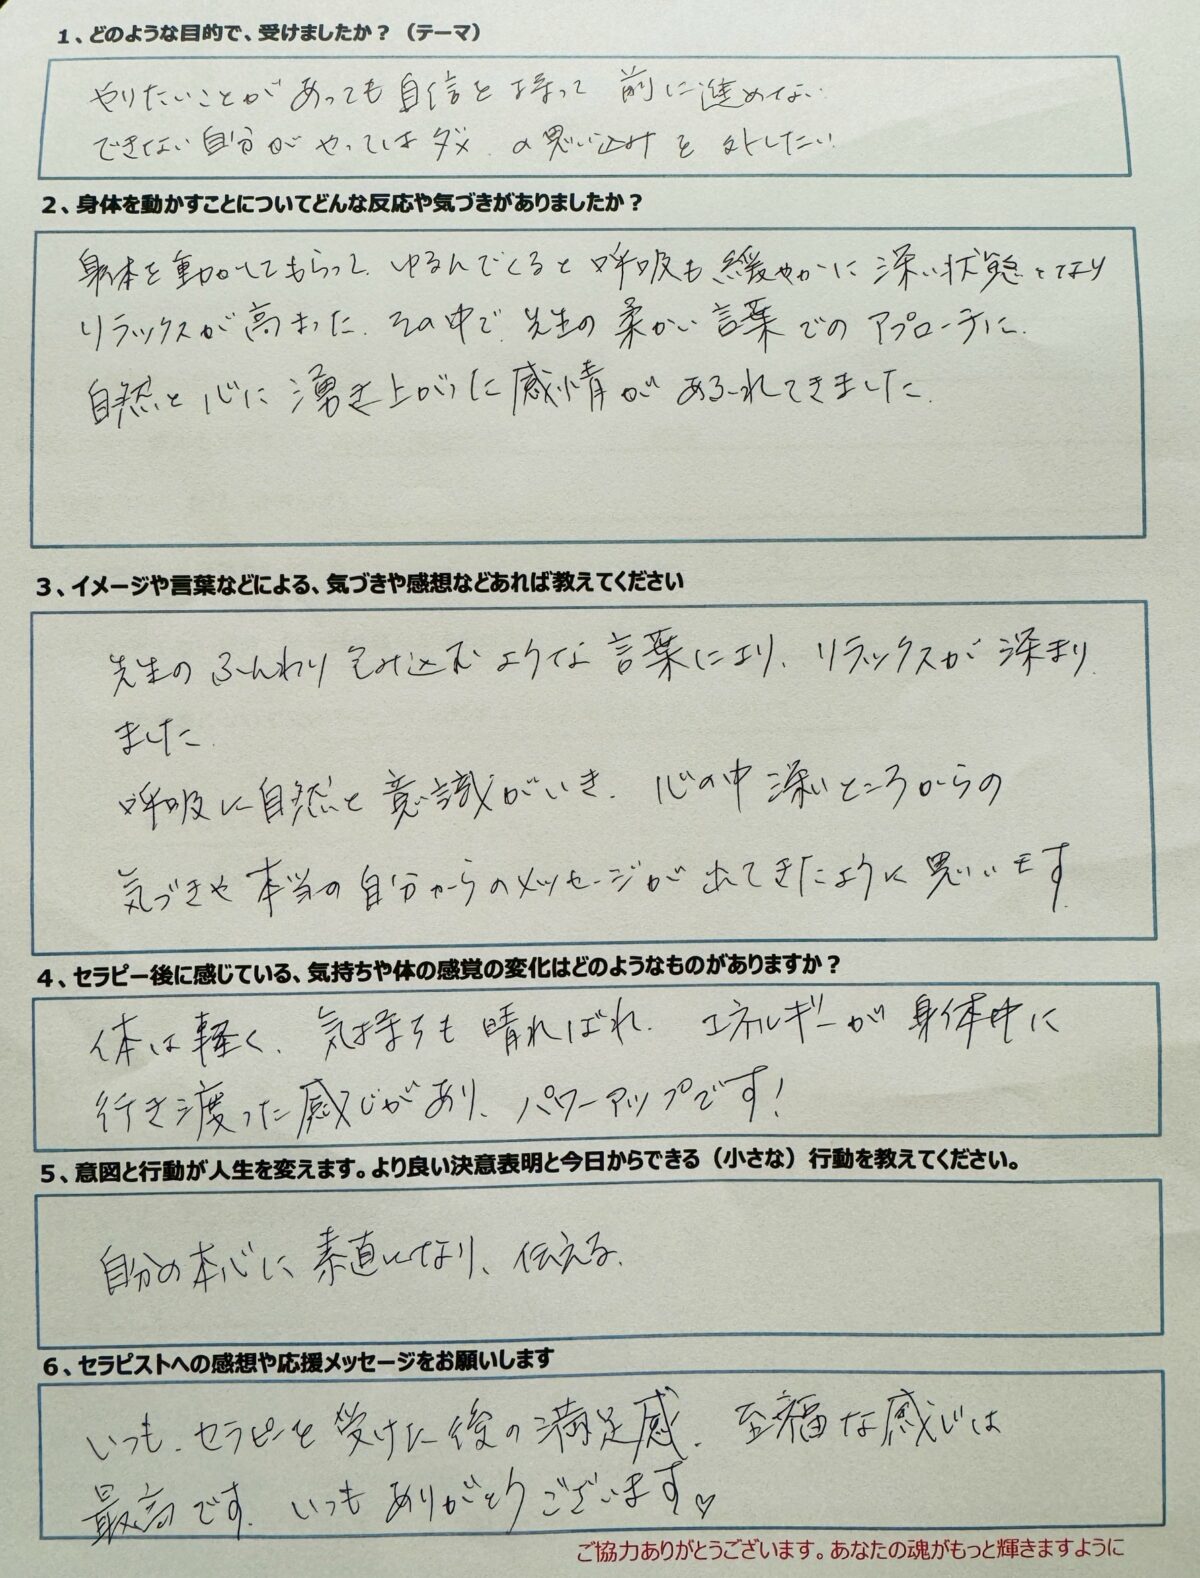 1、どのような目的で、受けましたか？（テーマ）
やりたいことがあっても自信を持って前に進めない
できない自分がやってはダメ、の思い込みを外したい
2、身体を動かすことについてどんな反応や気づきがありましたか？
身体を動かしてもらって、ゆるんでくると呼吸も緩やかに深い状態となり
リラックスが高まった。その中で、先生の柔かい言葉でのアプローチに、
自然と心に湧き上がった感情があふれてきました。
3、イメージや言葉などによる、気づきや感想などあれば教えてください
先生のふんわり包み込むような言葉により、リラックスが深まり
ました。
呼吸に自然と意識がいき、心の中深いところからの
気づきや本当の自分からのメッセージが出てきたように思います
4、セラピー後に感じている、気持ちや体の感覚の変化はどのようなものがありますか？
体は軽く、気持ちも晴ればれ、エネルギーが身体中に
行き渡った感じがあり、パワーアップです！
5、意図と行動が人生を変えます。より良い決意表明と今日からできる（小さな）行動を教えてください。
自分の本心に素直になり、伝える。
6、セラピストへの感想や応援メッセージをお願いします
いつも、セラピーを受けた後の満足感、至福な感じは
最高です。いつもありがとうございます♡
ご協力ありがとうございます。あなたの魂がもっと輝きますように